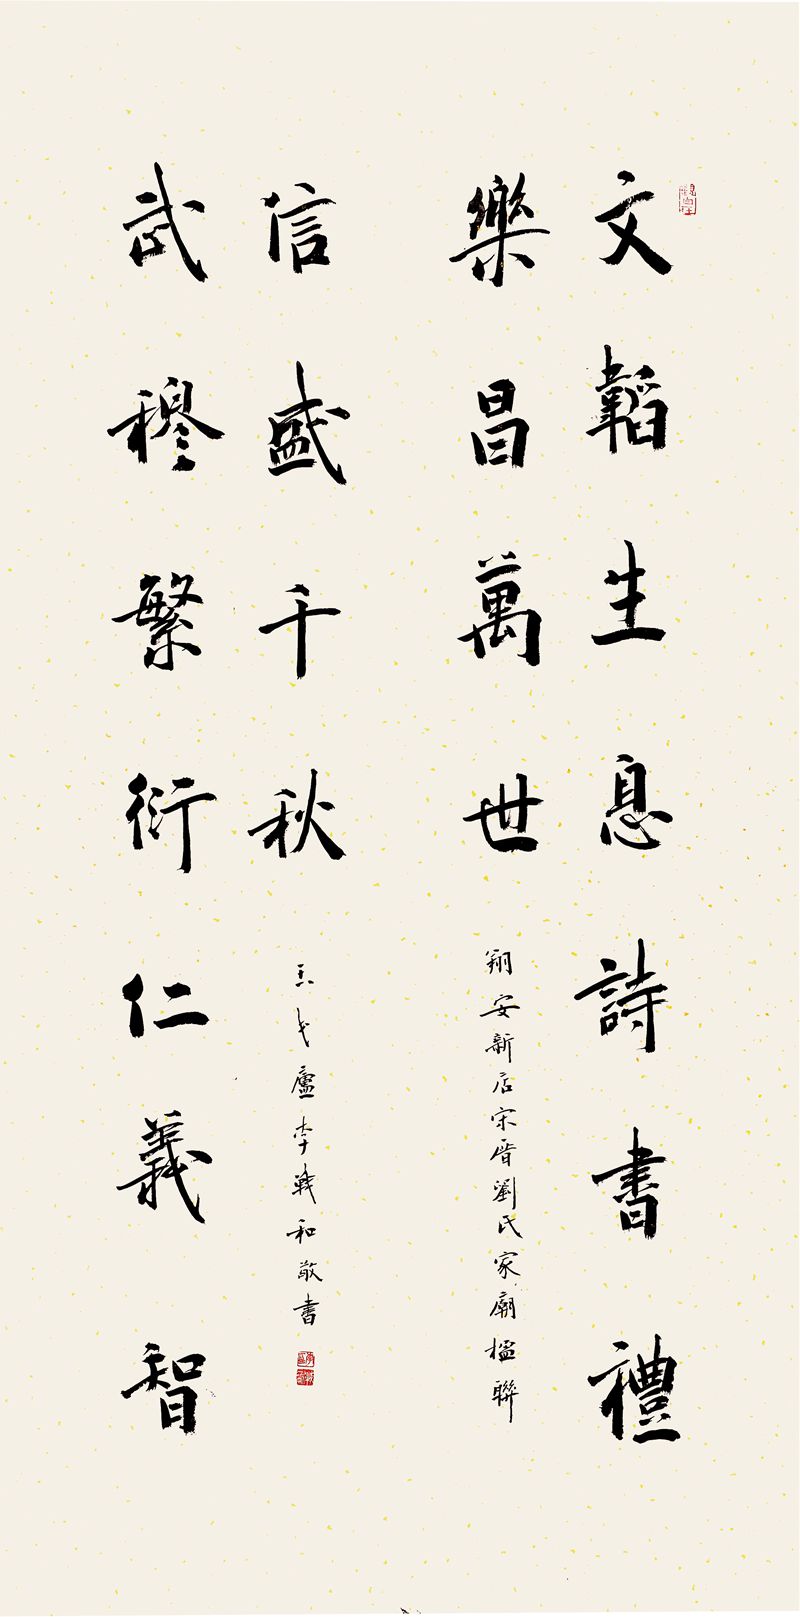 文韜生息詩書禮
樂昌萬世
翔安新店宋厝劉氏家廟楹聯
信盛千秋
武穆繁衍仁義智
廬李戰和敬書